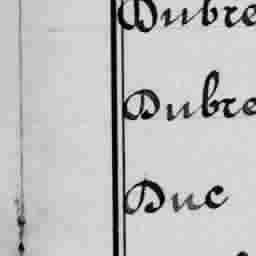 Dubre
Dubre
Duc